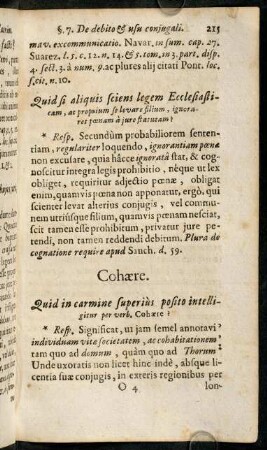 §. 7. De debito & usu conjugali. 215
mav. excommunicatio. Navar. in sum. cap. 27.
Suarez. l. 5. c. 12. n. 14. & 5. tom. in 3. part. disp.
4. sect. 3. à num. 9. ac plures alij citati Pont. loc.
s. cit. n. 10.
Quid si aliquis sciens legem Ecclesiasti-
cam, ac propaium se levare filium, ignora-
ret pœnam à jure statutam?
* Resp. Secundùm probabiliorem senten-
tiam, regulariter loquendo, ignorantiam pœnæ
non excusare, quia hâcce ignoratâ stat, & cog-
noscitur integra legis prohibitio, nèque ut lex
obliget, requiritur adjectio pœnæ, obligat
enim, quamvis pœna non apponatur, ergò, qui
scienter levat alterius conjugis, vel commu-
nem utriúsque filium, quamvis pœnam nesciat,
scit tamen esse prohibitum, privatur jure pe-
tendi, non tamen reddendi debitum. Plura de
cognatione require apud Sanch. d. 59.
Cohære.
Quid in carmine superiùs posito intelli-
gitur per verb. Cohære?
* Resp. Significat, ut jam semel annotavi
individuam vitæ societatem, ac cohabitationem
tam quo ad domum, quàm quo ad Thorum
Unde uxoratis non licet hinc indè, absque li-
centia suæ conjugis, in exteris regionibus per
O 4 lon-